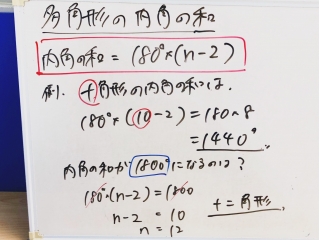 多角形の内角の和
内角の和 = 180°×(n-2)
例. 十角形の内角の和は.
180°×(10-2) = 180×8
= 1440°
内角の和が1800°になるのは?
180°×(n-2) = 1800
n-2 = 10
n = 12
十二角形